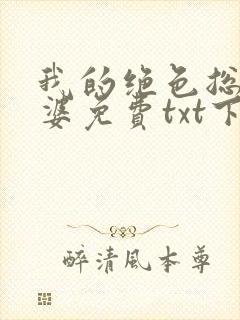 我的绝色总
婆免费txt下
醉清风本尊